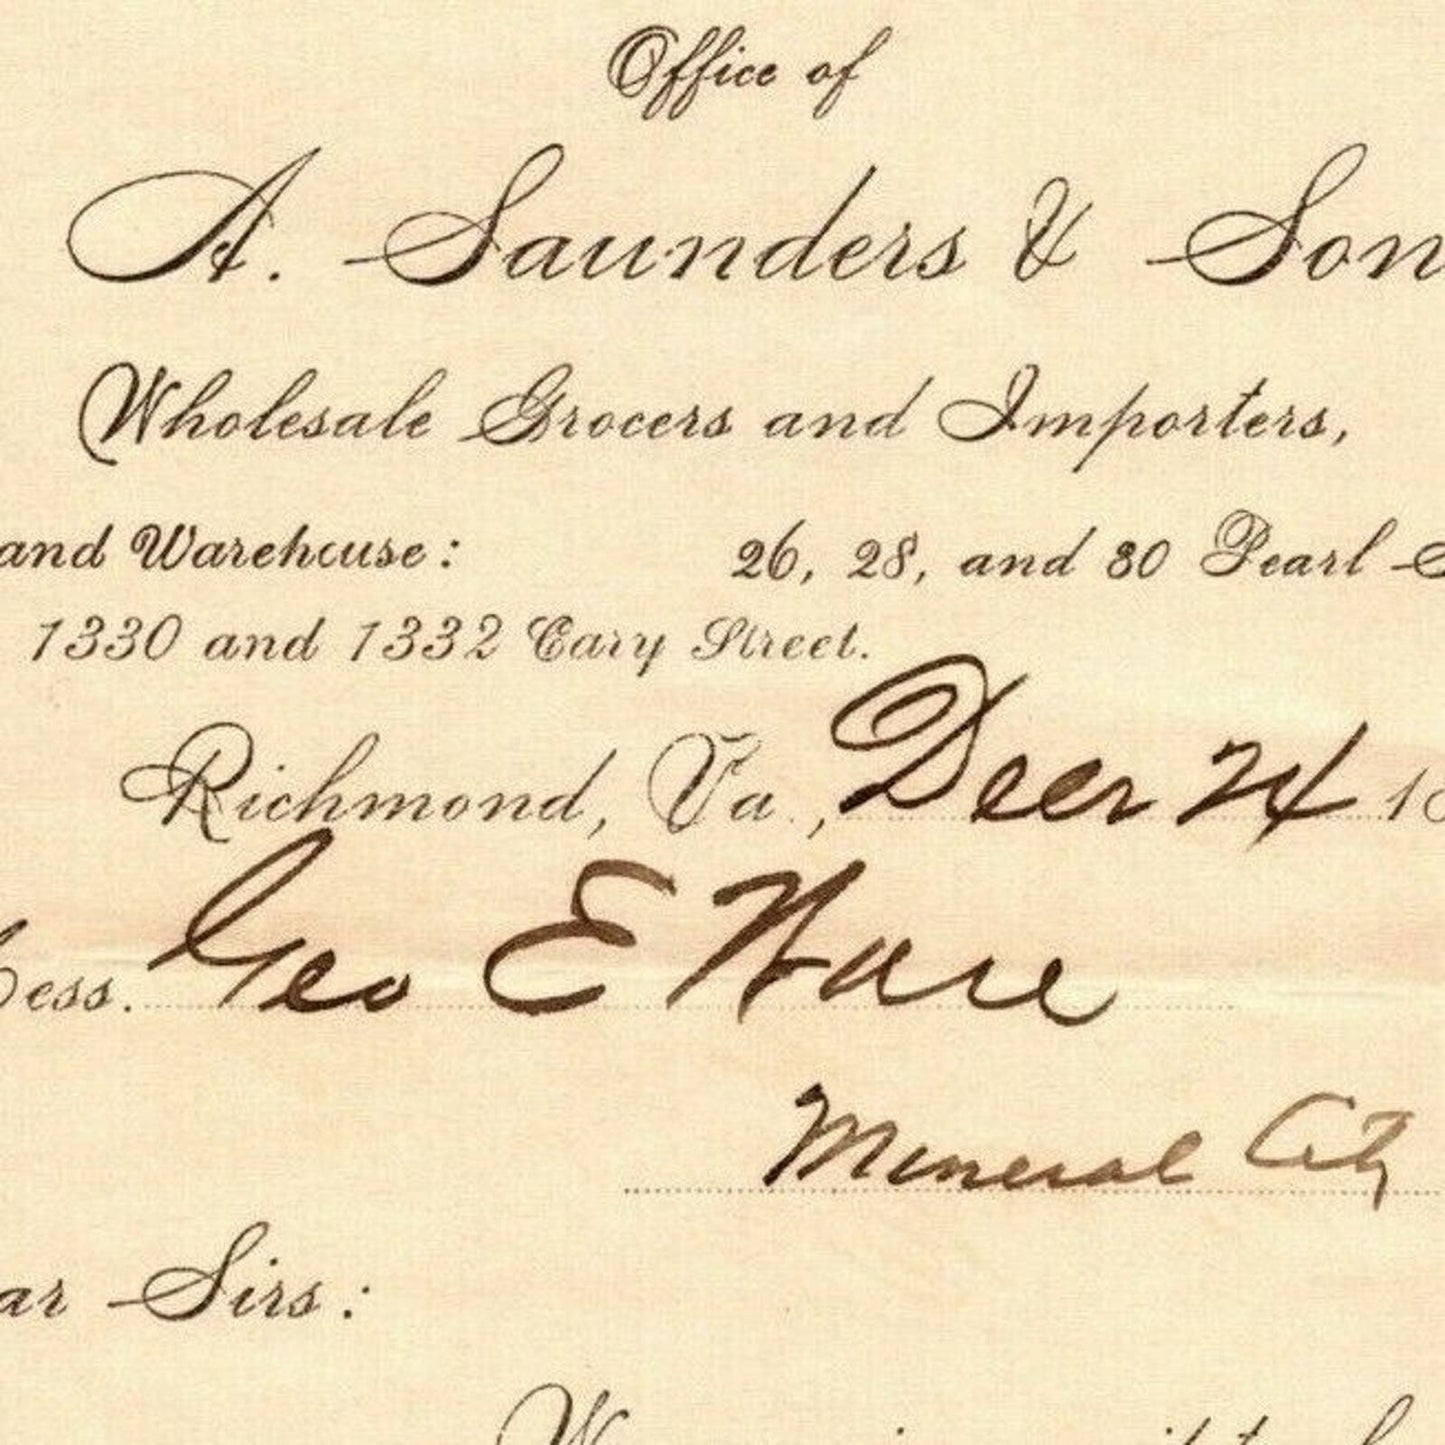 Office of
A. Saunders & Son
Wholesale Grocers and Importers,
and Warehouse: 26, 28, and 30 Pearl S
1330 and 1332 Cary Street.
Richmond, Va., Decr 24 18
ess. Geo E Ware
Mineral City
ar Sirs: